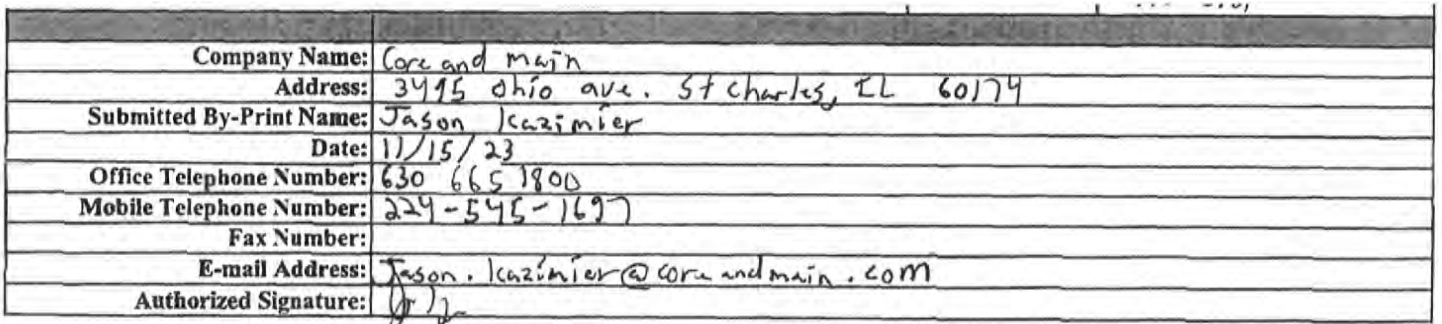 Company Name: Core and main
Address: 3495 Ohio ave. St charles, IL 60174
Submitted By-Print Name: Jason Kazimier
Date: 11/15/23
Office Telephone Number: 630 665 1800
Mobile Telephone Number: 224-545-1697
Fax Number:
E-mail Address: Jason.Kazimier@coreandmain.com
Authorized Signature: